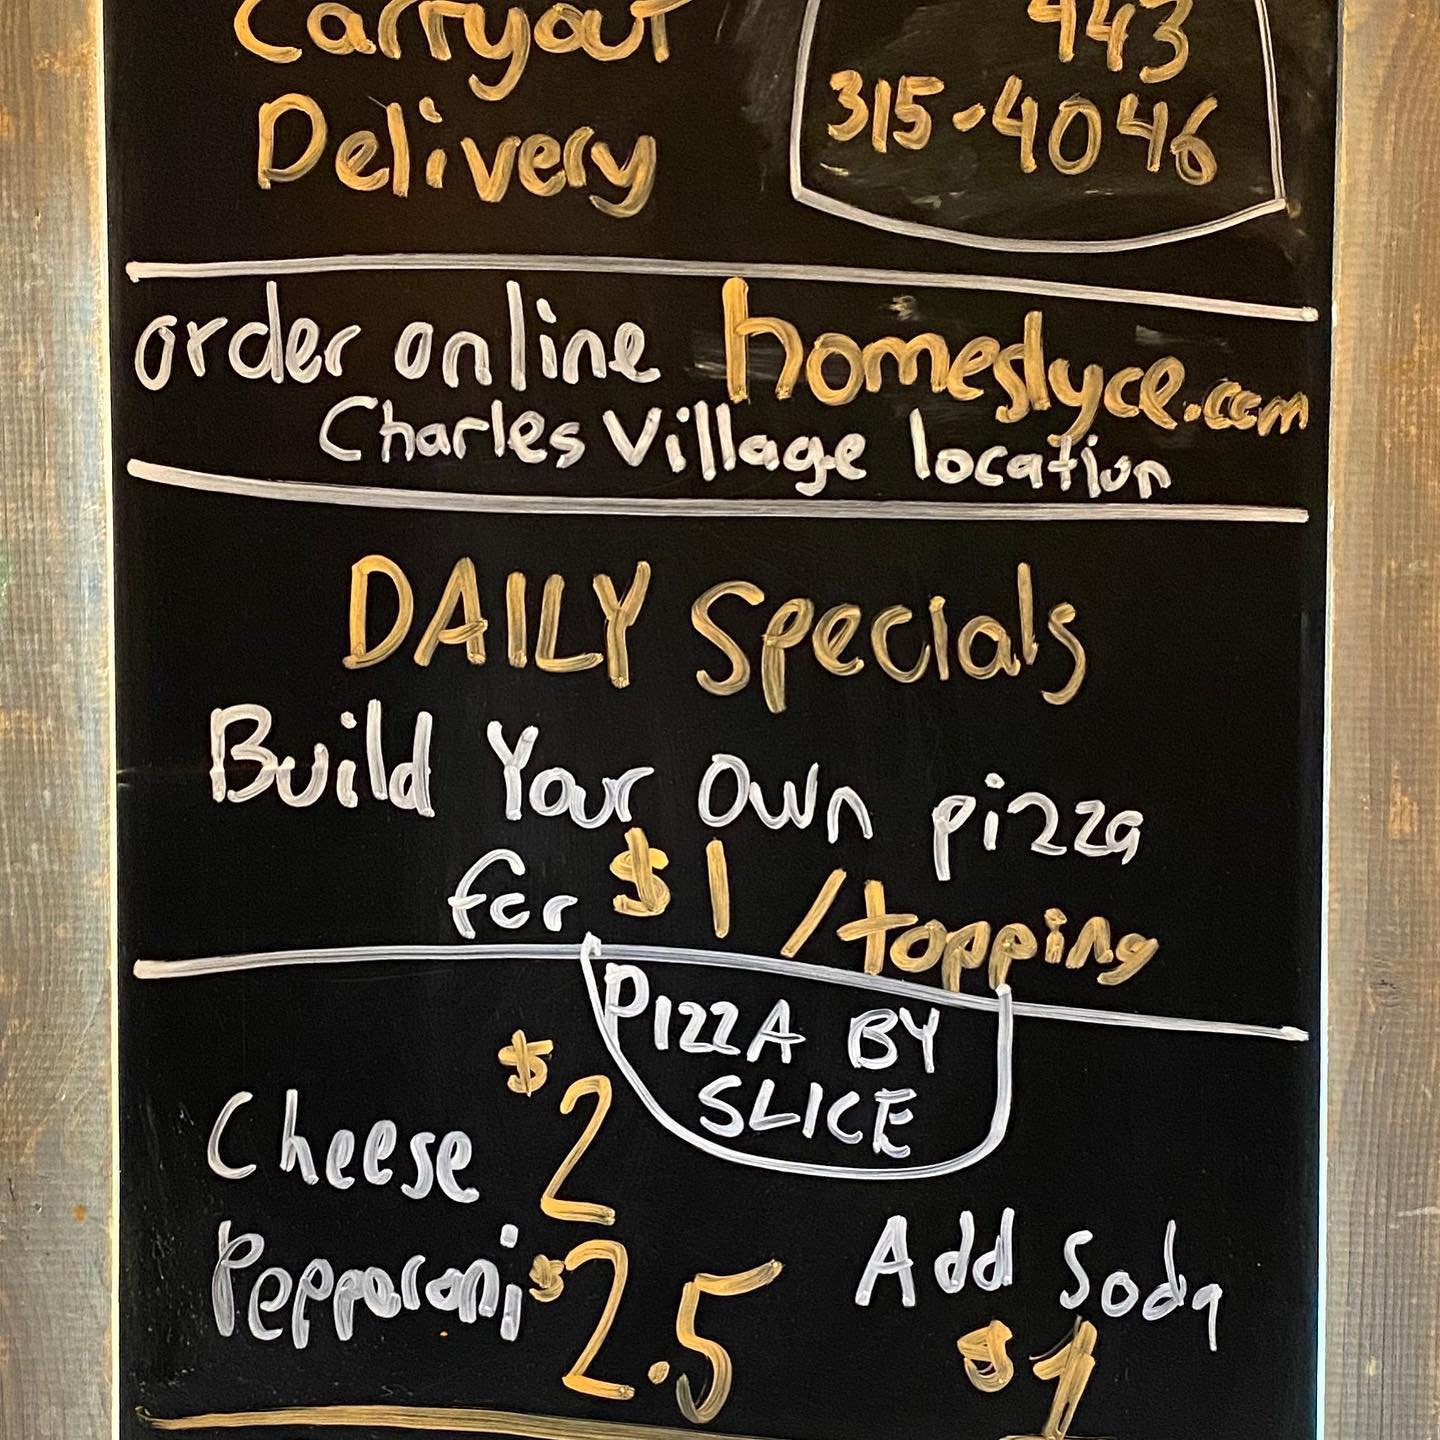 Carryout
Delivery
443
315-4046
order online homeslyce.com
Charles Village location
DAILY Specials
Build Your Own pizza
for $1/topping
PIZZA BY
SLICE
Cheese $2
Pepperoni $2.5
Add Soda
$1